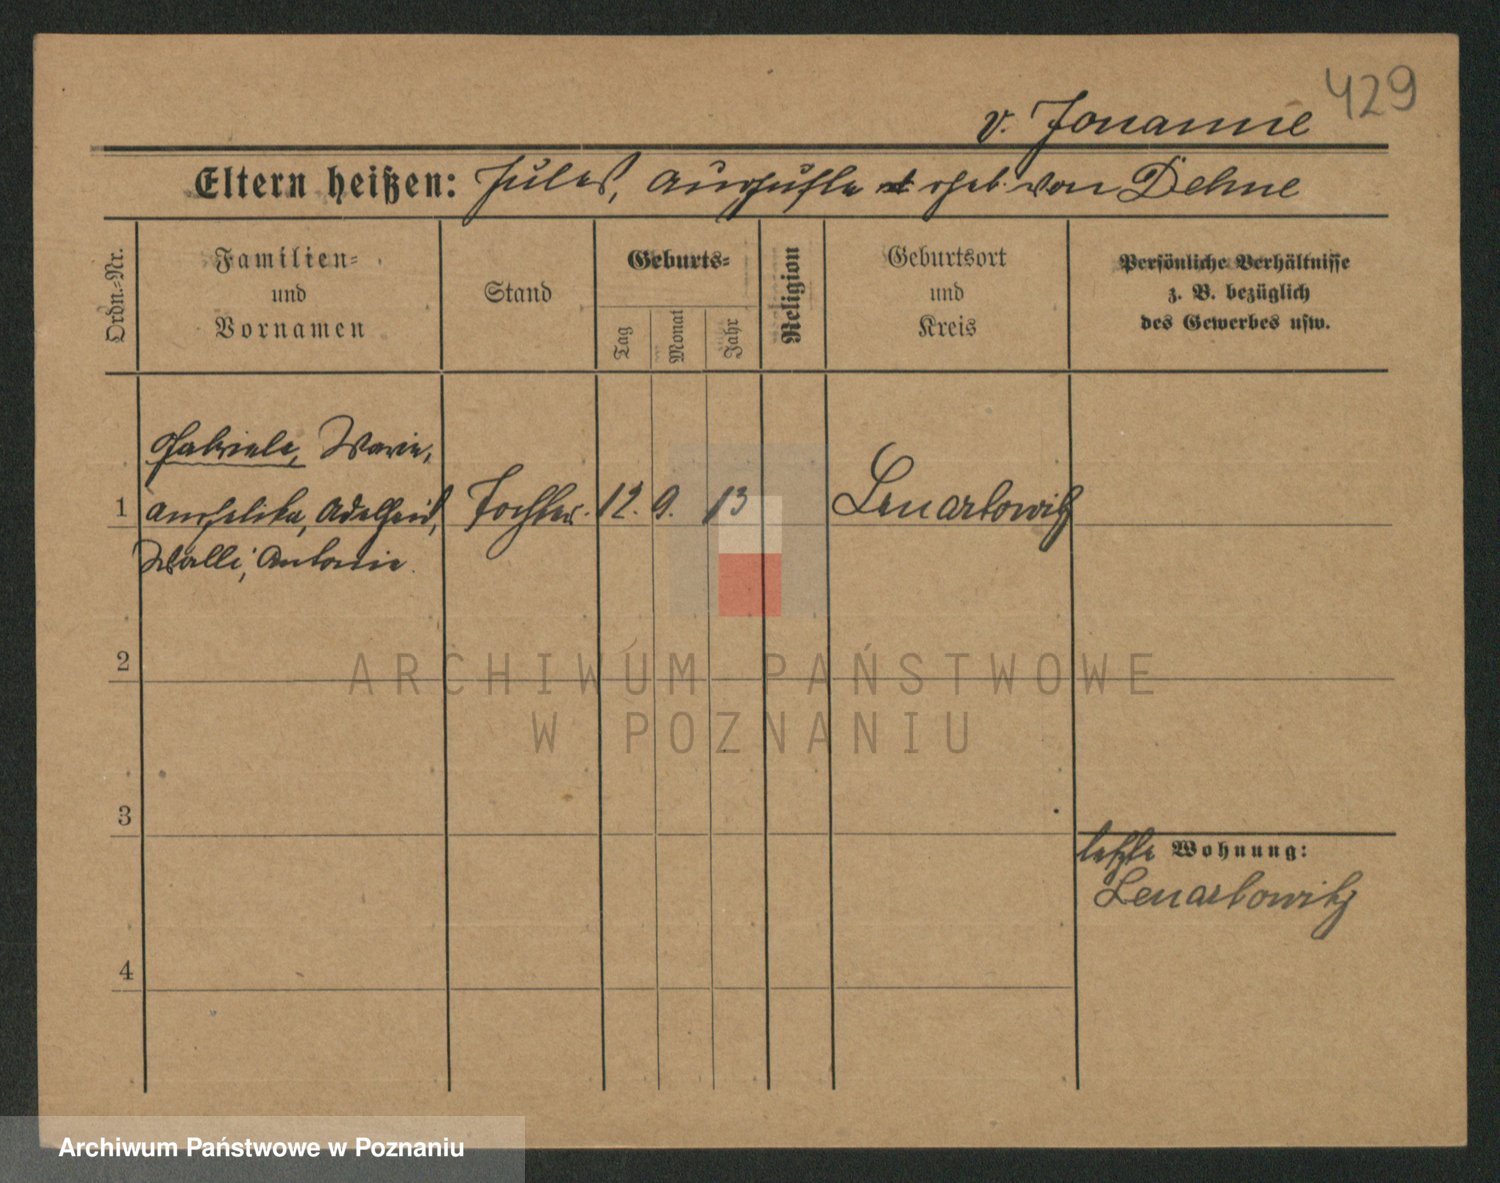 429
v. Jouanne
Eltern heißen: Jules, Auguste geb. von Dehne
Ordn.-Nr.
Familien-
und
Vornamen
Stand
Geburts-
Tag
Monat
Jahr
Religion
Geburtsort
und
Kreis
Persönliche Verhältnisse
z. B. bezüglich
des Gewerbes usw.
Gabriele, Marie,
1 Angelika, Adelheid, Tochter. 12. 9. 13 Lenartowitz
Walli, Antonie.
2
3
letzte Wohnung:
Lenartowitz
4
ARCHIWUM PAŃSTWOWE
W POZNANIU
Archiwum Państwowe w Poznaniu